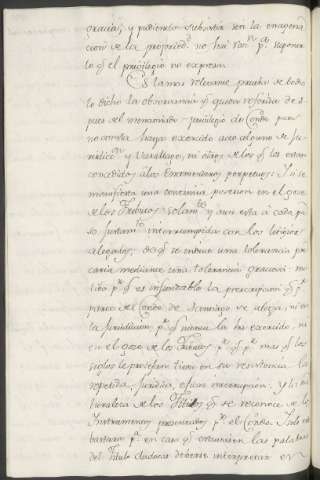 gracias, y pudiendo subsistir con la enagena
cion de la propiedd. no hai razn. pa. suponer
lo qe. el privilegio no expresa.
Es la mas relevante prueba de todo
lo dicho la observancia qe. queda referida des
pues del mencionado privilegio de Conde pues
no consta haya exercido acto alguno de Ju-
risdiccn. y Vasallage, ni otros de los qe. los estan
concedidos a los
manifiesta una continua posesion en el goce
de los Tributos, solamte. y aun esta á cada pa
so juntamte. interrumpida con los litigios
alegados; de qe. se infiere una tolerancia pre
caria mediante una tolerancia graciosa: mo
tibo pr. qe. es infundable la prescripcion qe. pr.
parte del Conde de Santiago se alega, ni en
la Jurisdiccion pr. qe. nunca la ha exercido, ni
en el goce de los Tributos pr. qe. pr. mas qe. los
siglos le prefieran tiene en su resistencia la
repetida, juridica, eficaz interrupcion. Y la li
teralidad de los Titulos qe. se reconoce de los
Instrumentos presentados pr. el Conde. Todo lo
pr. en caso qe. estuviesen las palabras
del Titulo dudosas deberse interpretar en